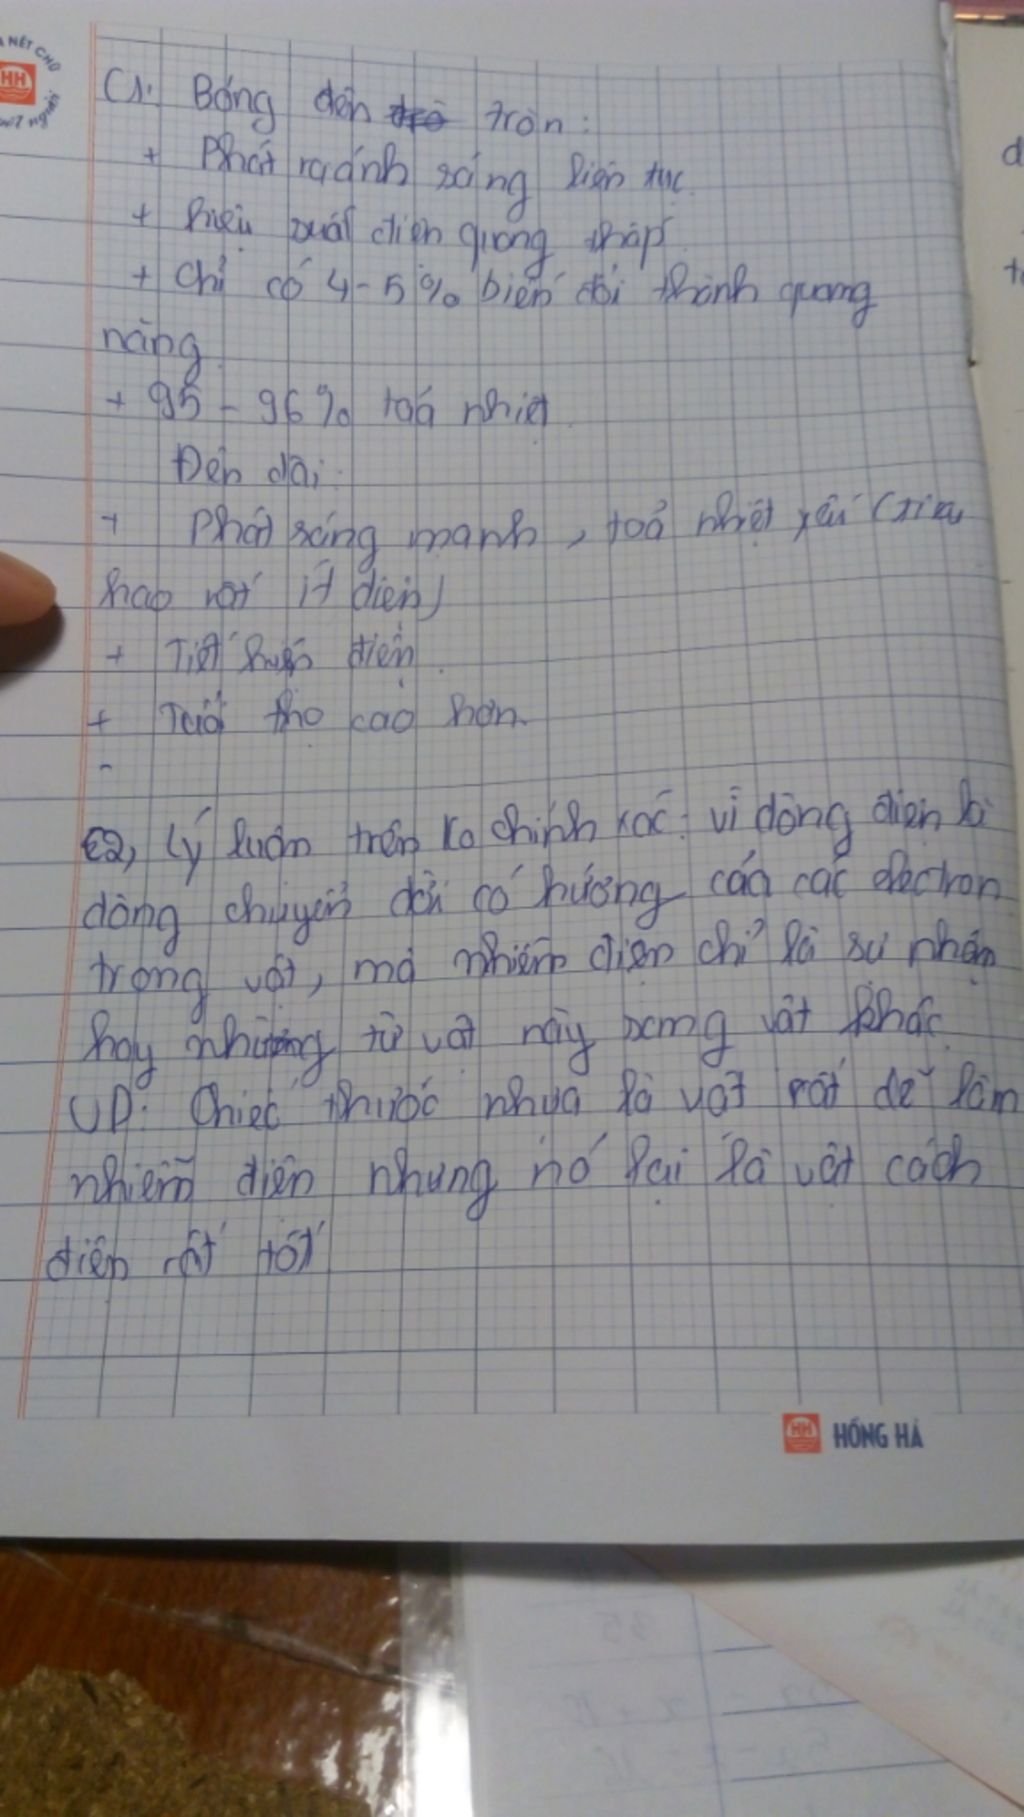 C1. Bóng đèn tròn:
+ Phát ra ánh sáng liên tục.
+ hiệu suất điện quang thấp
+ Chỉ có 4-5% biến đổi thành quang
năng
+ 95 - 96% toả nhiệt.
Đèn dài:
+ Phát sáng mạnh, toả nhiệt yếu (tiêu
hao rất ít điện)
+ Tiết kiệm điện.
+ Tuổi thọ cao hơn.
-
C2, Lý luận trên ko chính xác: vì dòng điện là
dòng chuyển dời có hướng của các electron
trong vật, mà nhiễm điện chỉ là sự nhận
hay nhường từ vật này sang vật khác.
VD: Chiếc thước nhựa là vật rất dễ làm
nhiễm điện nhưng nó lại là vật cách
điện rất tốt
HH
HỒNG HÀ
NÉT CHỮ
HH
NẾT NGƯỜI
35